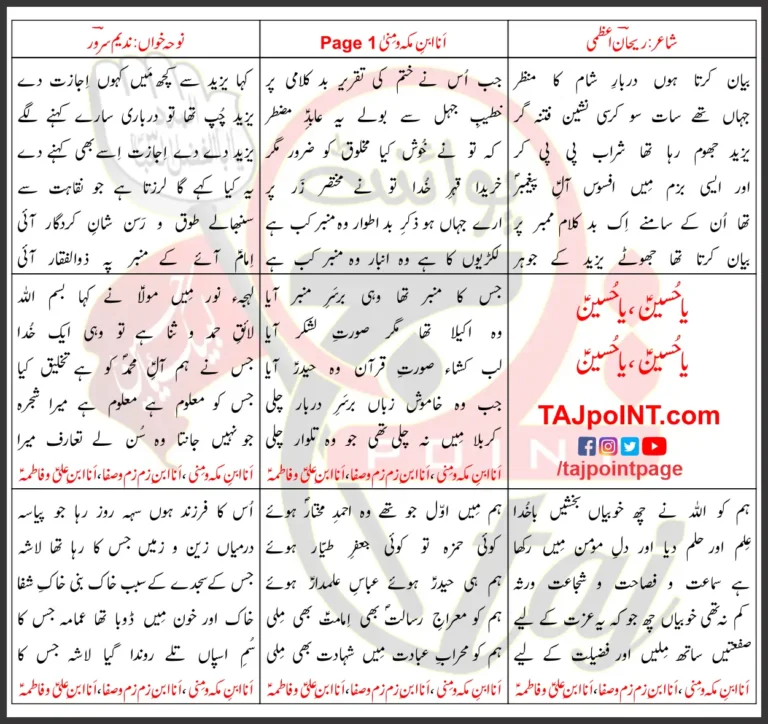 شاعر: ریحان اعظمی
اَنا ابنِ مکہ و منیٰ Page 1
نوحہ خواں: ندیم سرور
بیان کرتا ہوں دربارِ شام کا منظر
جہاں تھے سات سو کرسی نشین فتنہ گر
یزید جھوم رہا تھا شراب پی پی کر
اور ایسی بزم میں افسوس آلِ پیغمبرؐ
تھا اُن کے سامنے اِک بد کلام ممبر پر
بیان کرتا تھا جھوٹے یزید کے جوہر
جب اُس نے ختم کی تقریر بد کلامی پر
خطیبِ جہل سے بولے یہ عابدِ مضطر
کہ تو نے خُوش کیا مخلوق کو ضرور مگر
خریدا قہرِ خُدا تو نے مختصر زَر پر
ارے جہاں ہو ذکرِ بد اطوار وہ منبر کب ہے
لکڑیوں کا ہے وہ انبار وہ منبر کب ہے
کہا یزید سے کچھ مَیں کہوں اِجازت دے
یزید چُپ تھا تو درباری سارے کہنے لگے
یزید دے دے اِجازت اِسے بھی کہنے دے
یہ کیا کہے گا لرزتا ہے جو نقاہت سے
سنبھالے طوق و رَسن شانِ کردگار آئی
اِمامؑ آئے کے منبر پہ ذوالفقار آئی
یا حُسینؑ، یا حُسینؑ
یا حُسینؑ، یا حُسینؑ
TAJpoINT.com
/tajpointpage
جس کا منبر تھا وہی برسَرِ منبر آیا
وہ اکیلا تھا مگر صورتِ لشکر آیا
لب کشاء صورتِ قرآن وہ حیدرؑ آیا
جب وہ خاموش زباں برسَرِ دربار چلی
کربلا مِیں نہ چلی تھی جو وہ تلوار چلی
اَنا ابنِ مکہ و منیٰ، اَنا ابنِ زم زم و صفا، اَنا ابن علیؑ و فاطمہؑ
لہجہء نور مِیں مولاؑ نے کہا بسم اللہ
لائقِ حمد و ثنا ہے تو وہی ایک خُدا
جس نے ہم آلِ محمدؐ کو ہے تخلیق کیا
جس کو معلوم ہے معلوم ہے میرا شجرہ
جو نہیں جانتا وہ سُن لے تعارف میرا
اَنا ابنِ مکہ و منیٰ، اَنا ابنِ زم زم و صفا، اَنا ابن علیؑ و فاطمہؑ
ہم کو اللہ نے چھ خوبیاں بخشیں باخُدا
عِلم اور حلم دیا اور دلِ مؤمن مِیں رکھا
ہے سماعت و فصاحت و شجاعت ورثہ
کم نہ تھی خوبیاں چھ جو کہ یہ عزت کے لیے
صفعتیں ساتھ مِلیں اور فضیلت کے لیے
اَنا ابنِ مکہ و منیٰ، اَنا ابنِ زم زم و صفا، اَنا ابن علیؑ و فاطمہؑ
ہم مِیں اوّل جو تھے وہ احمدِ مختارؐ ہوئے
کوئی حمزہ تو کوئی جعفرِ طیّار ہوئے
ہم ہی حیدرؑ ہوئے عباسِ علمدارؑ ہوئے
ہم کو معراجِ رسالتؐ بھی اِمامتؑ بھی مِلی
ہم کو محرابِ عبادت مِیں شہادت بھی مِلی
اَنا ابنِ مکہ و منیٰ، اَنا ابنِ زم زم و صفا، اَنا ابن علیؑ و فاطمہؑ
اُس کا فرزند ہوں سہہ روز رہا جو پیاسہ
درمیاں زین و زمیں جس کا رہا تھا لاشہ
جس کے سجدے کے سبب خاک بنی خاکِ شفا
خاک اور خون مِیں ڈوبا تھا عمامہ جس کا
سُمِ اسپاں تلے روندا گیا لاشہ جس کا
اَنا ابنِ مکہ و منیٰ، اَنا ابنِ زم زم و صفا، اَنا ابن علیؑ و فاطمہؑ